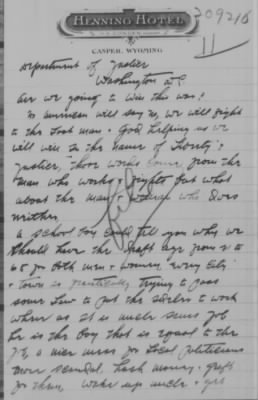 HENNING HOTEL
209216
CASPER, WYOMING
II
Department of Justice
Washington DC
Are we going to win this war?
No American will say No, we will fight
to the last man & God helping us we
will win In the Name of Liberty &
Justice, those words come from the
man who works & fights but what
about the man & woman who does
neither.
A school boy could tell you why we
should have the draft age from 2 to
65 for both men & women, every City
& town is practically trying to pass
some Law to put the idlers to work
where as it is uncle sams job
he is the boy that is equal to the
job a nice mess for local politicians
more scandal. hush money & graft
for them, wake up uncle & get